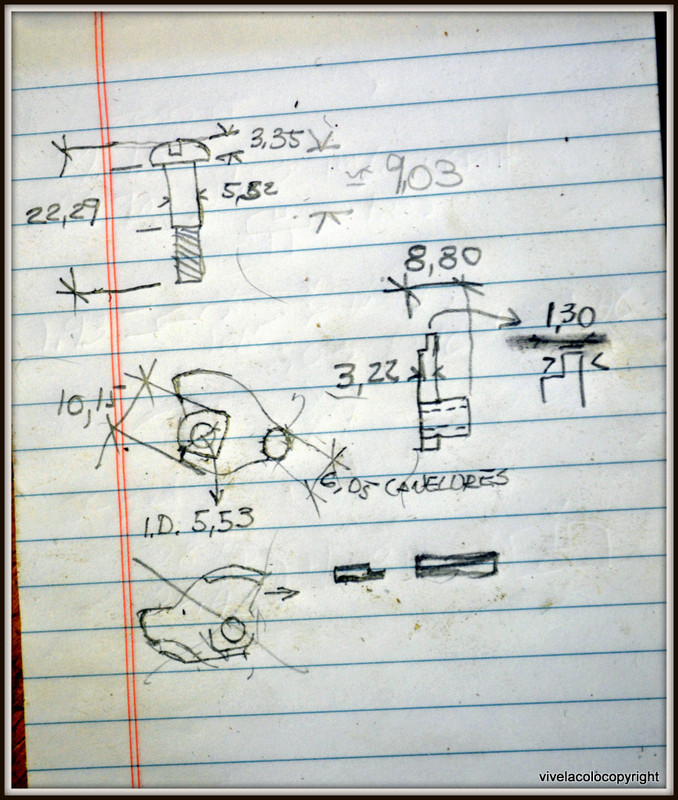 3,35
9,03
22,29
5,52
8,80
1,30
3,22
10,15
6,05 CANELURES
I.D. 5,53
vivelacolocopyright